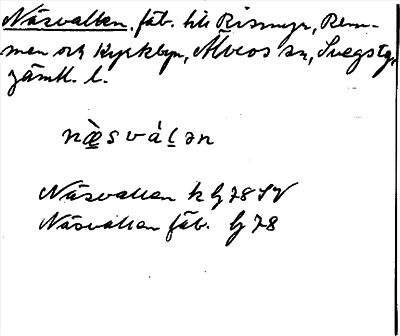 Näsvallen. fäb. till Rismyr, Rem-
men och Kyrkbyn, Älvros sn, Svegs tg,
Jämtl. l.
næ̀svál̠ən
Näsvallen k bj 78 SV
Näsvallen fäb. bj 78